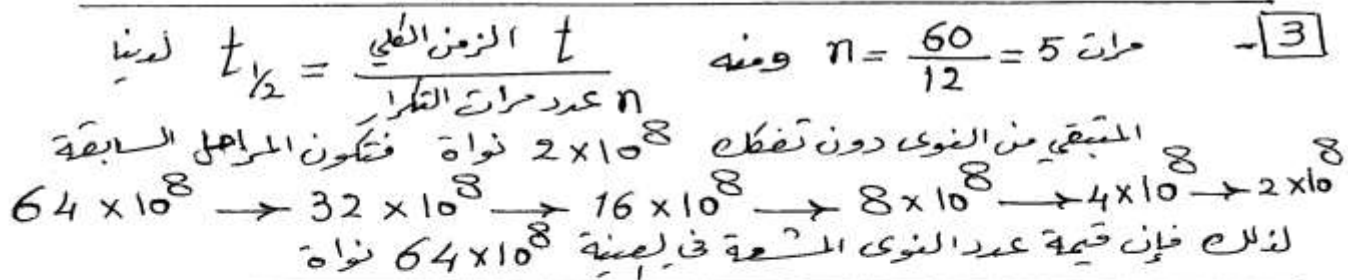 3 - لدينا t½ = t الزمن الكلي / n عدد مرات التكرار ومنه n = 60/12 = 5 مرات
المتبقي من النوى دون تفكك 2×10⁸ نواة فتكون المراحل السابقة
64×10⁸ → 32×10⁸ → 16×10⁸ → 8×10⁸ → 4×10⁸ → 2×10⁸
لذلك فإن قيمة عدد النوى المشعة في العينة 64×10⁸ نواة